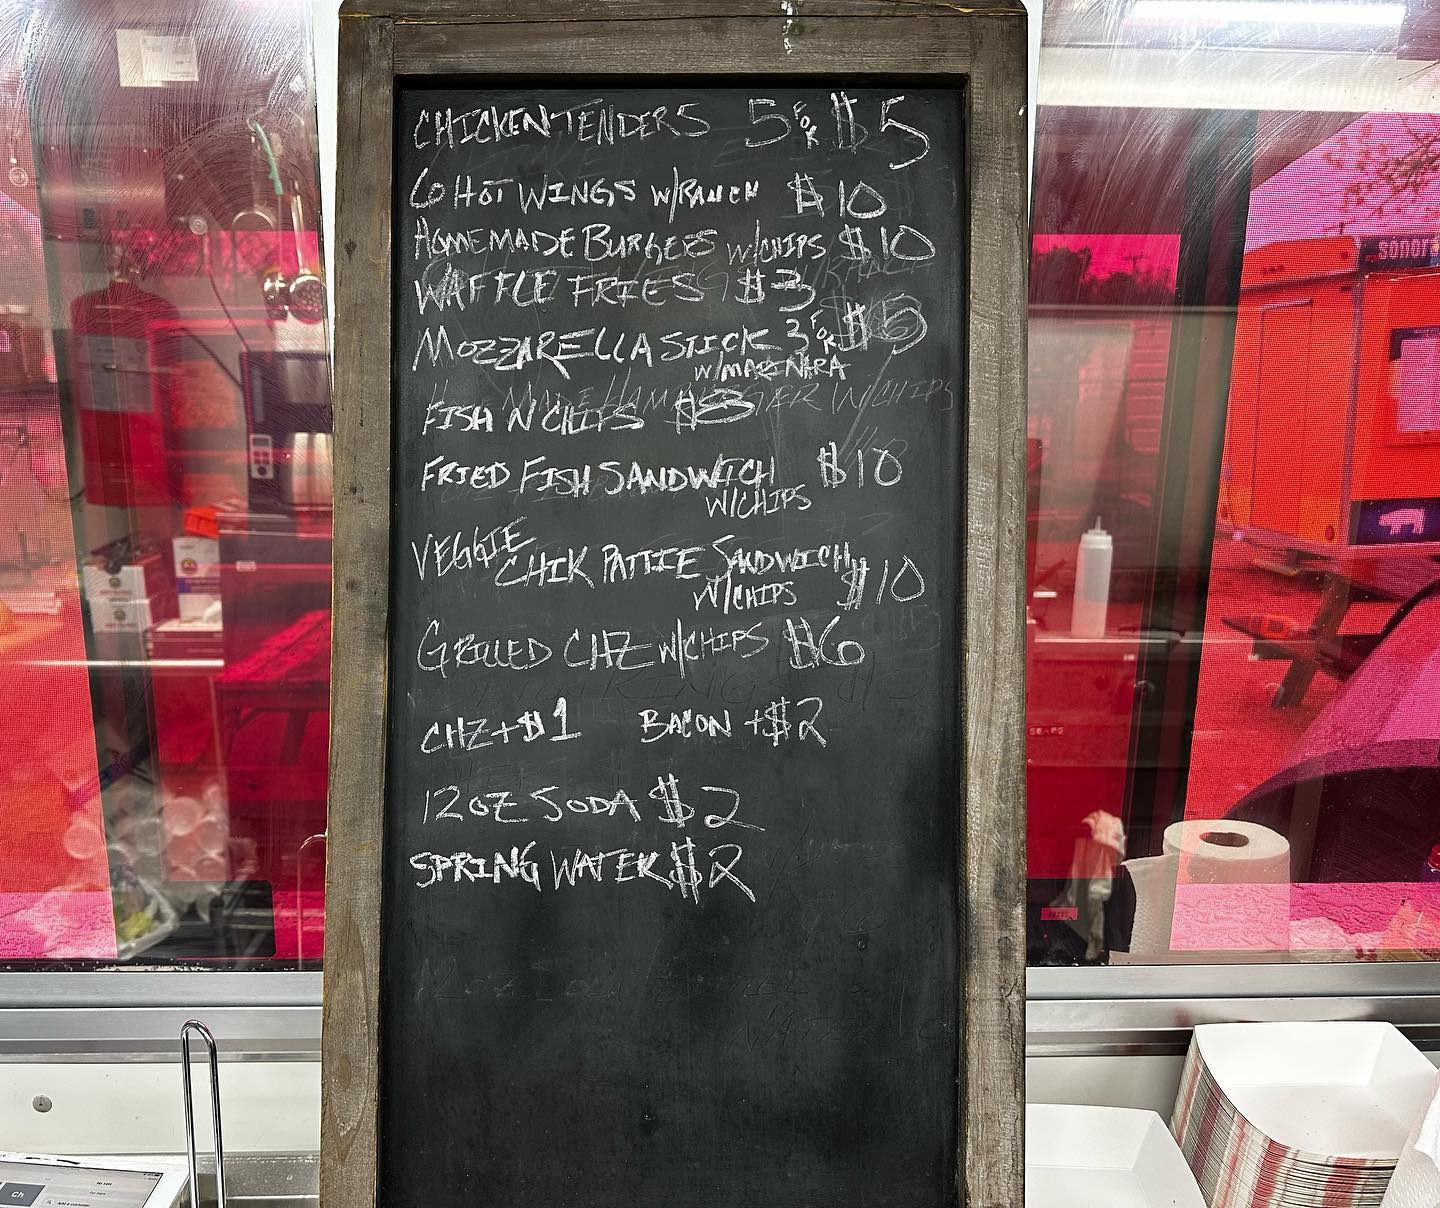 CHICKEN TENDERS 5 FOR $5
6 HOT WINGS W/RANCH $10
HOMEMADE BURGERS W/CHIPS $10
WAFFLE FRIES $3
MOZZARELLA STICK 3 FOR $5
W/MARINARA
FISH N CHIPS $8
FRIED FISH SANDWICH $10
W/CHIPS
VEGGIE
CHIK PATTIE SANDWICH
W/CHIPS $10
GRILLED CHZ W/CHIPS $6
CHZ+$1 BACON +$2
12OZ SODA $2
SPRING WATER $2
Ch
Add a customer